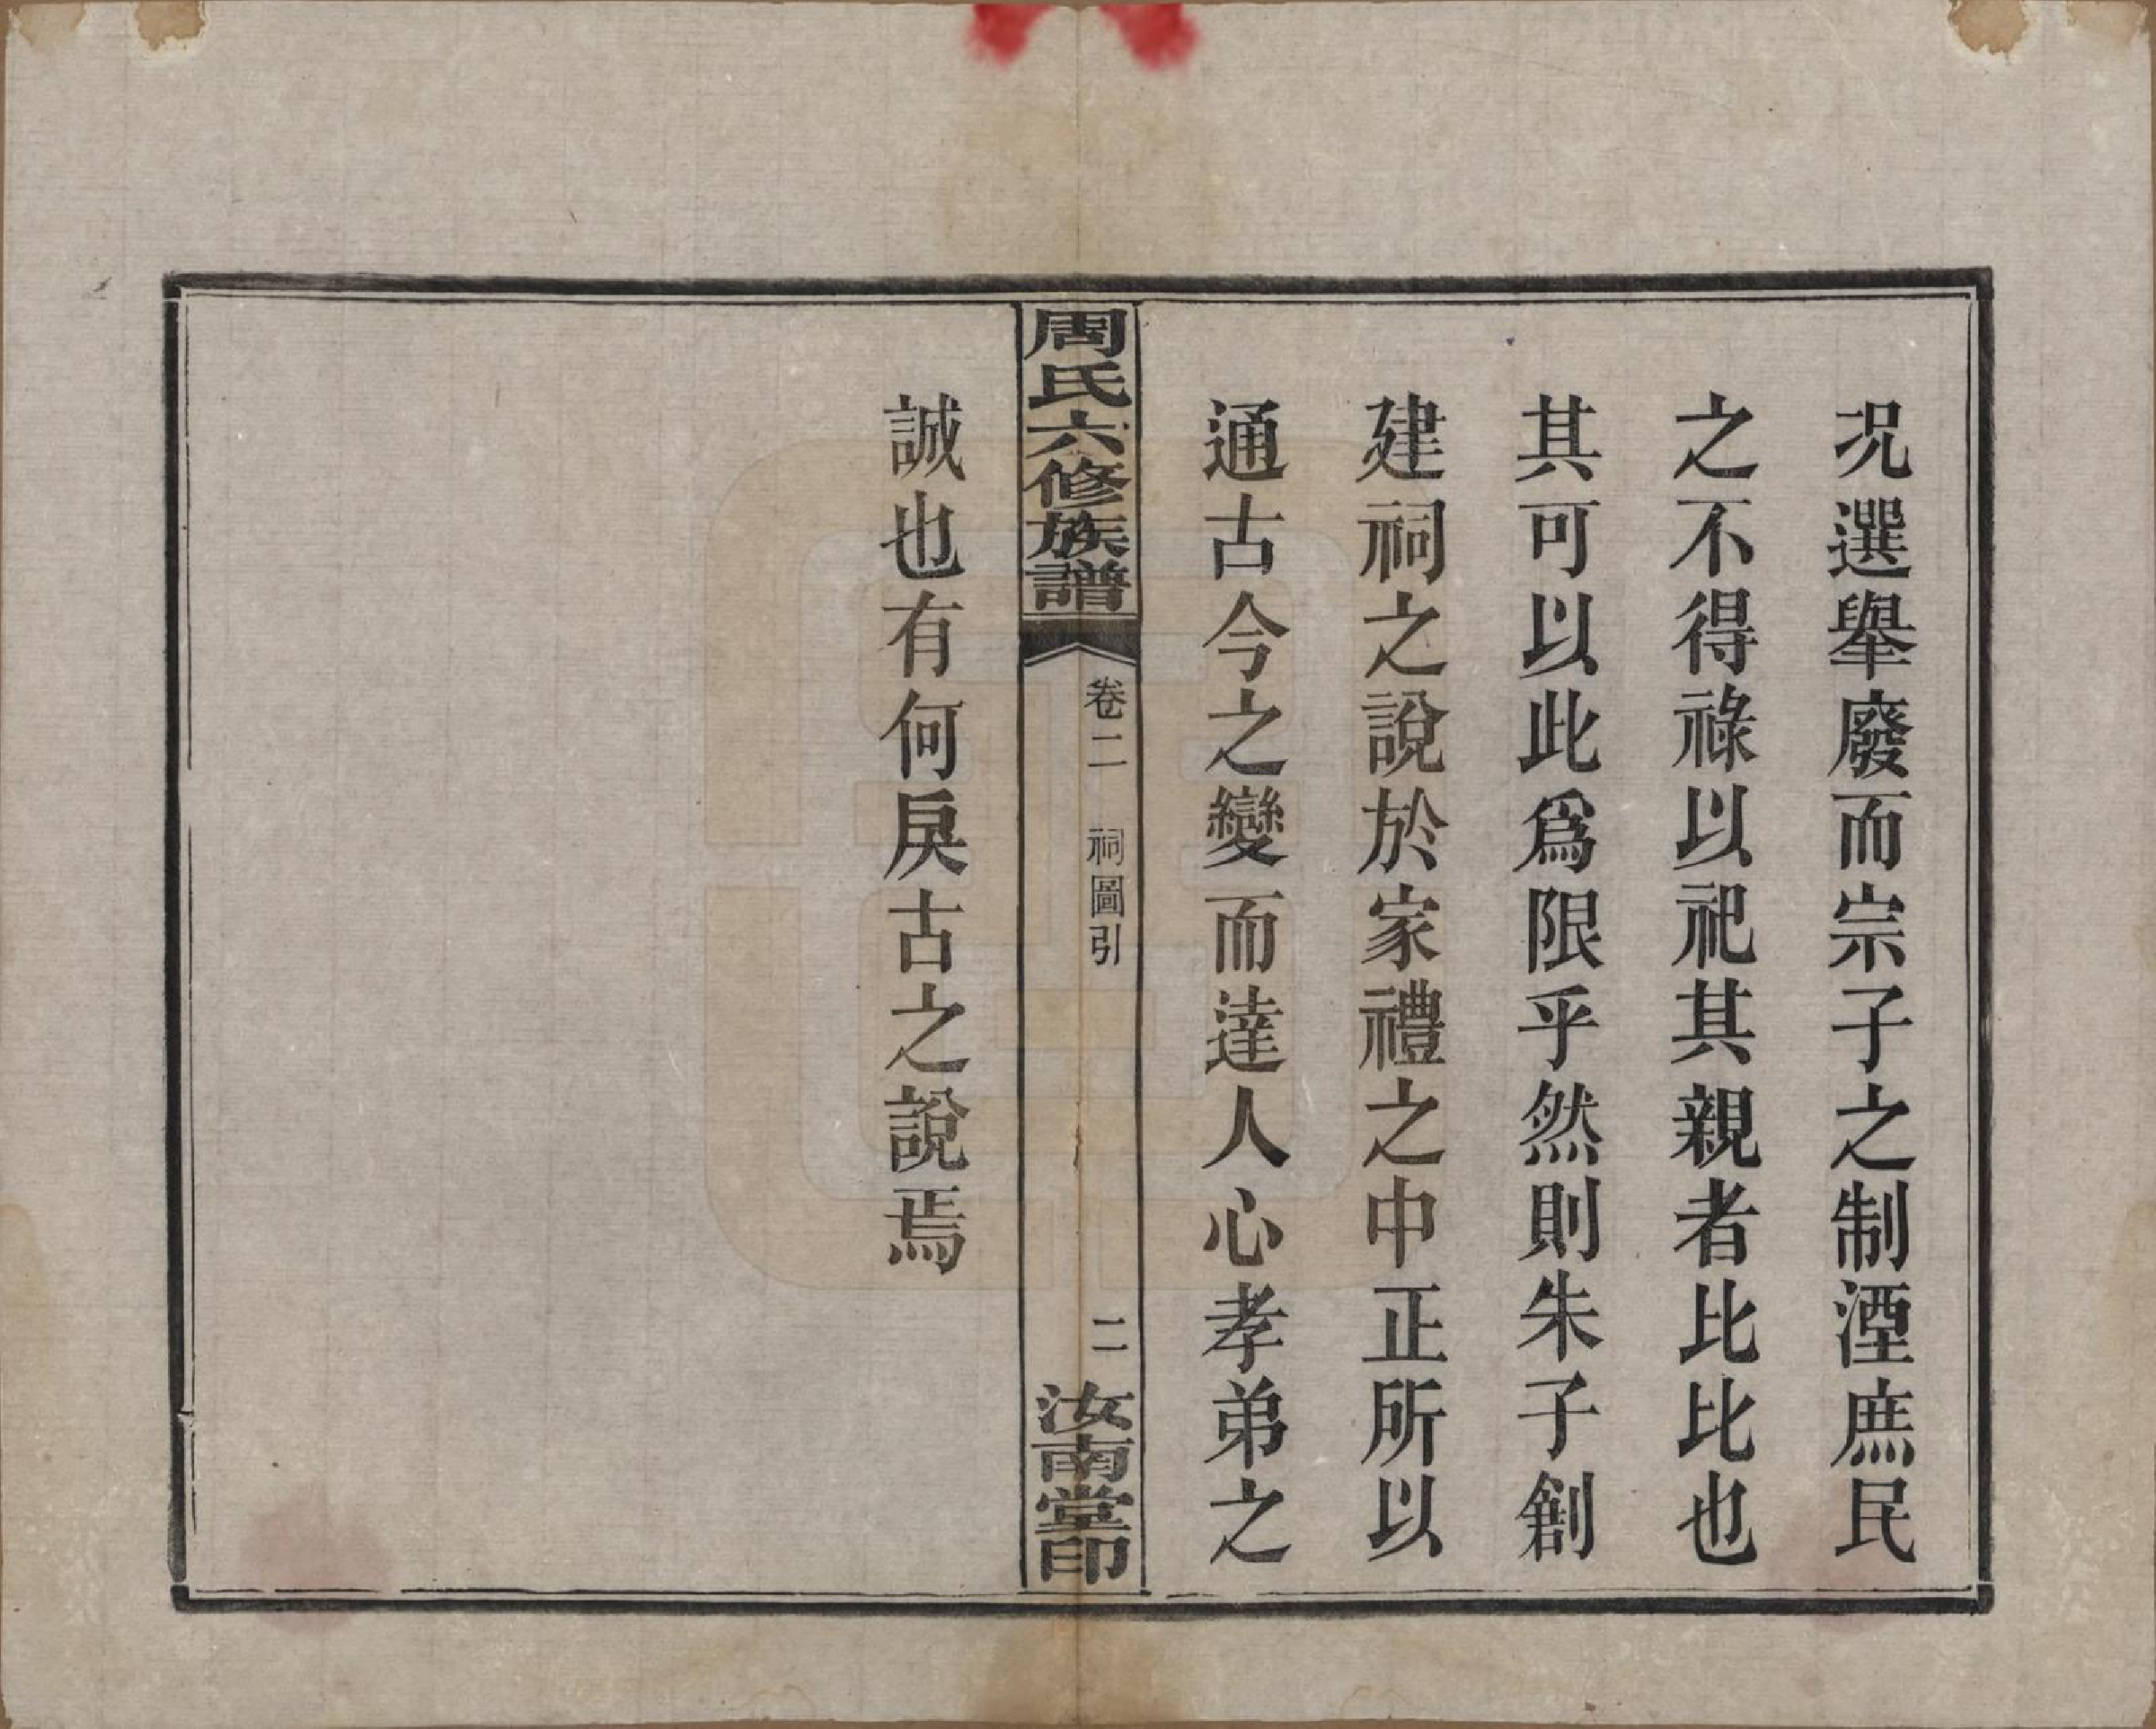 况選舉廢而宗子之制湮庶民
之不得祿以祀其親者比比也
其可以此爲限乎然則朱子創
建祠之說於家禮之中正所以
通古今之變而達人心孝弟之
周氏六修族譜
卷二 祠圖引
二
汝南堂印
誠也有何戾古之說焉